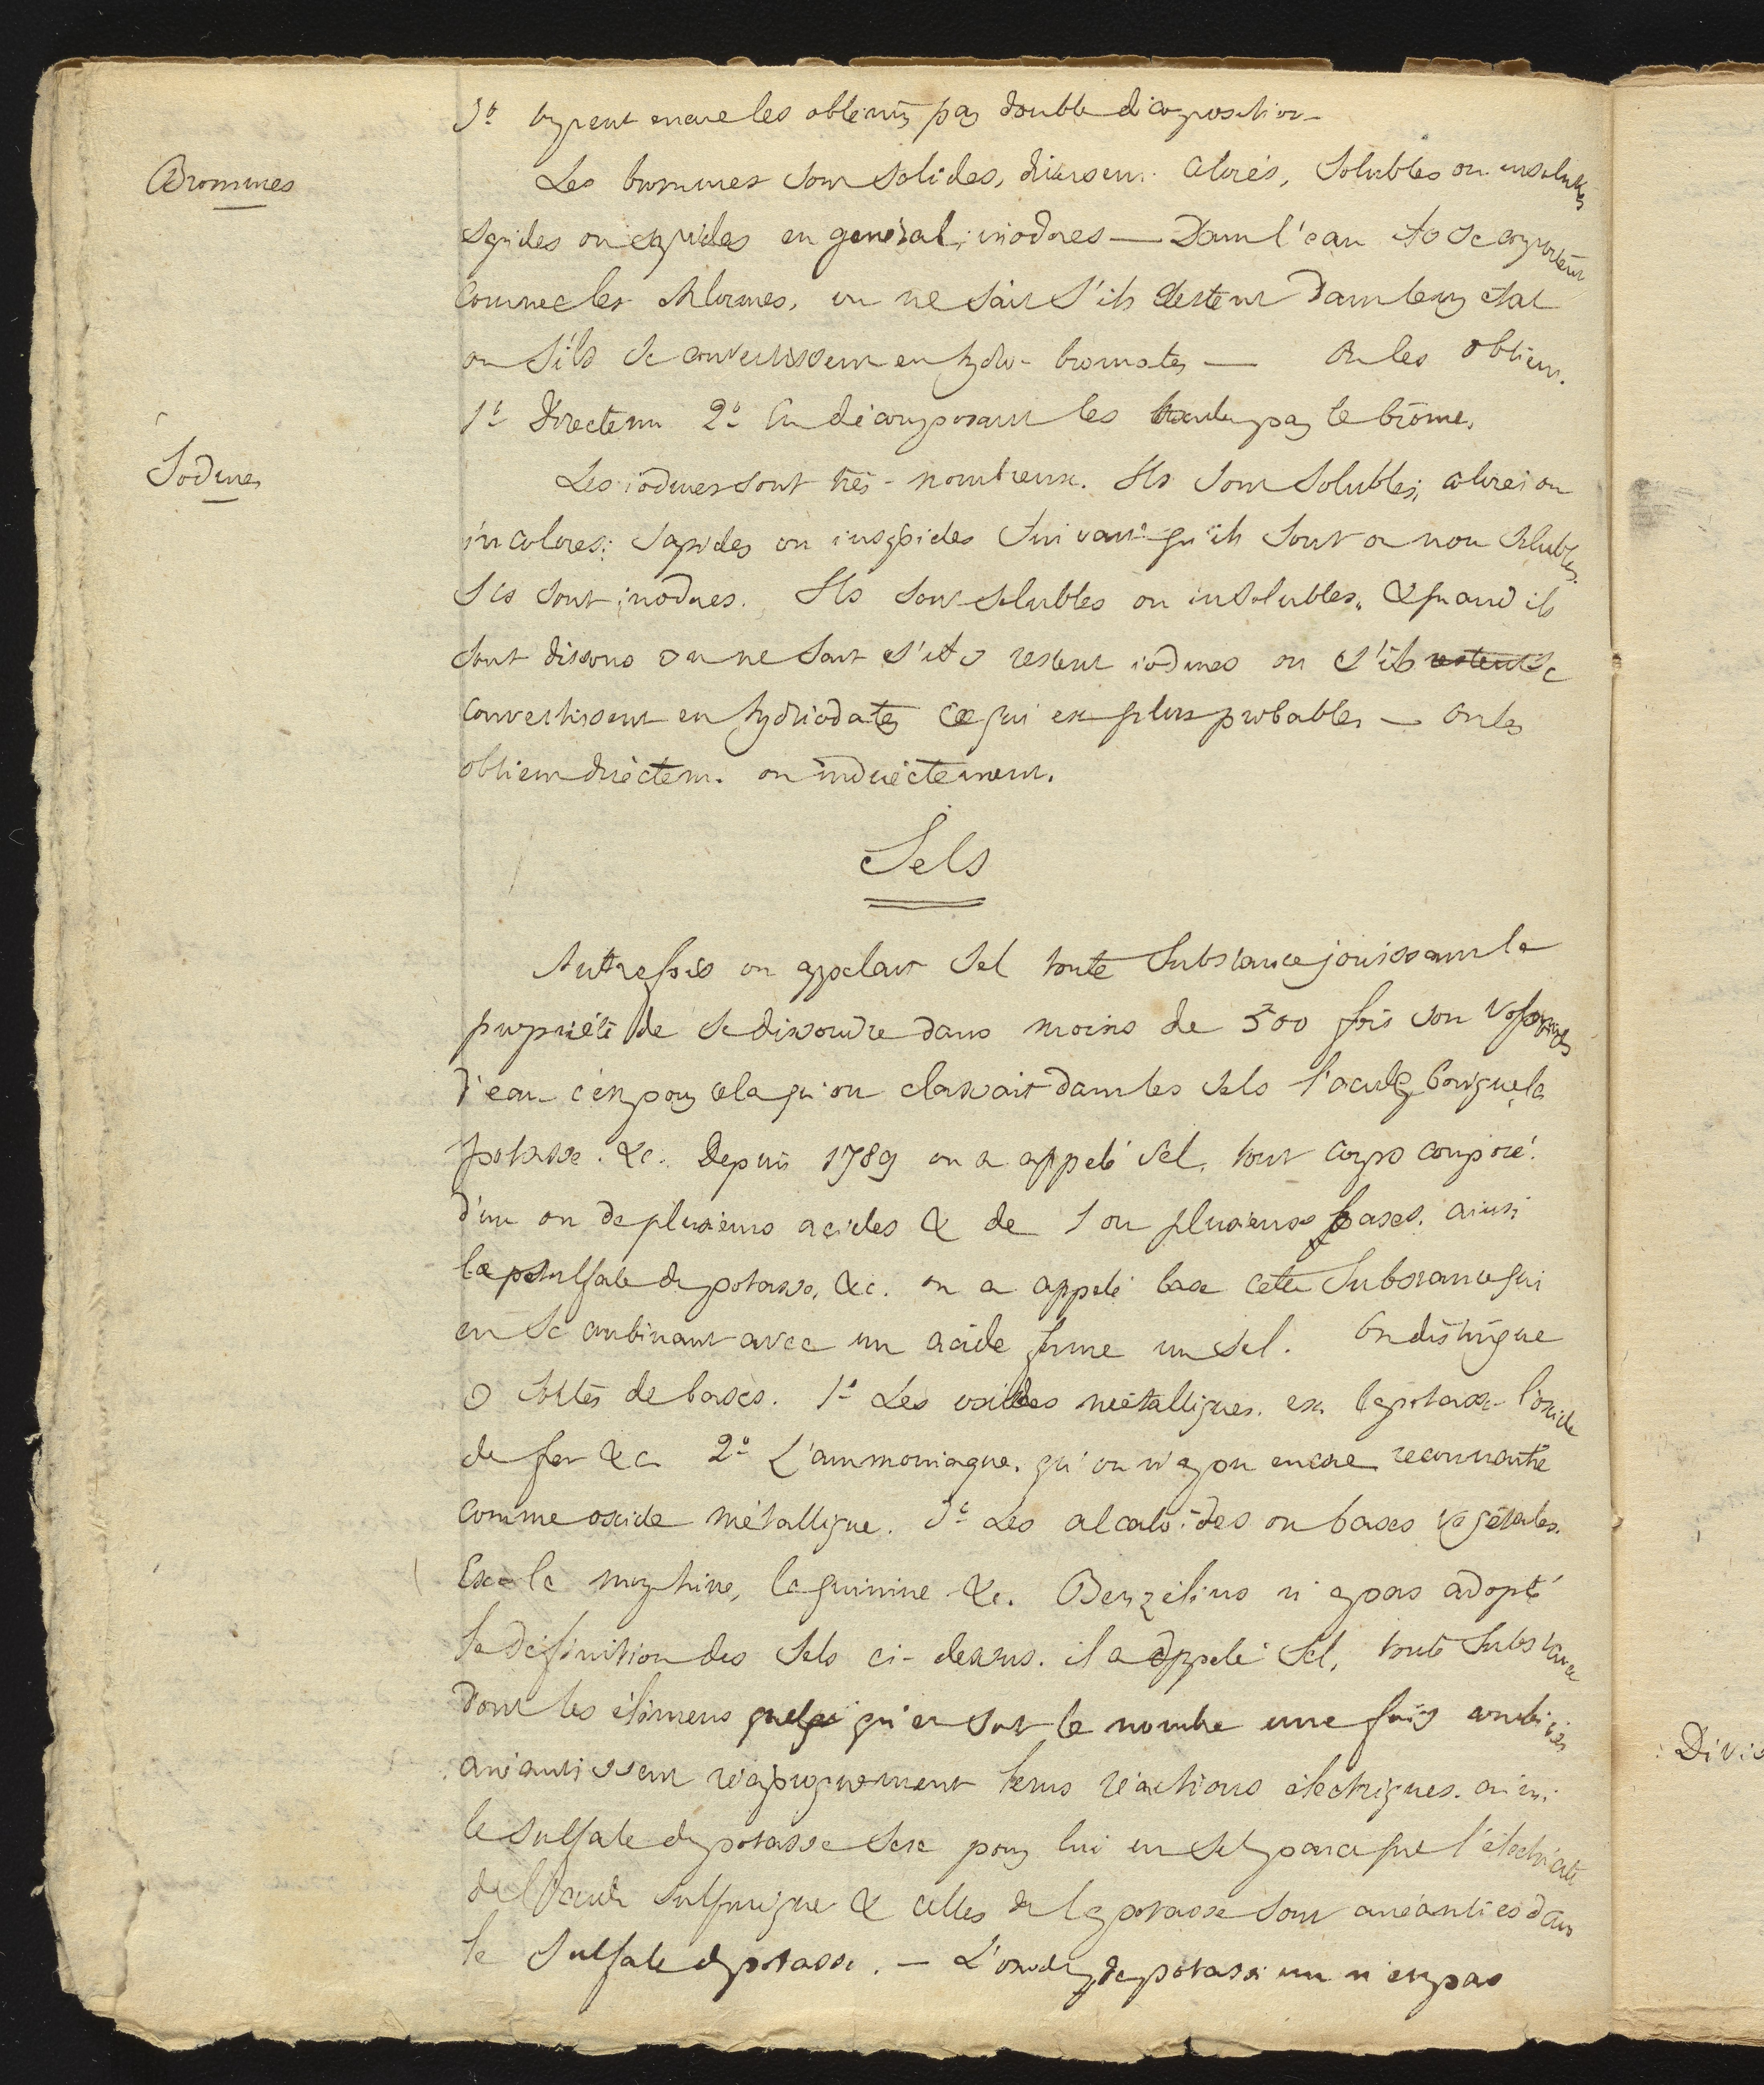 3° on peut encore les obtenir par double décomposition
Bromures
Les bromures sont solides, diversem. colorés, solubles ou insolubles
sapides ou insipides en général; inodores — Dans l'eau ils se comportent
comme les chlorures, on ne sait s'ils restent dans leur état
ou s'ils se convertissent en hydro-bromates — On les obtient
1° Directem. 2° En décomposant les par le brôme.
Iodures
Les iodures sont très-nombreux. Ils sont solubles, colorés ou
incolores; sapides ou insipides suivant qu'ils sont ou non solubles.
Ils sont inodores. Ils sont solubles ou insolubles. & quand ils
sont dissous on ne sait s'ils restent iodures ou s'ils restent se
convertissent en hydriodates ce qui est plus probables — on les
obtient directem. ou indirectement.
Sels
Autrefois on appelait sel toute substance jouissant la
propriété de se dissoudre dans moins de 500 fois son volume
d'eau c'est pour cela qu'on classait dans les sels l'acide borique, la
potasse. &c. Depuis 1789 on a appelé sel, tout corps composé
d'un ou de plusieurs acides & de 1 ou plusieurs bases. ainsi
le sulfate de potasse, &c. on a appelé base cette substance qui
en se combinant avec un acide forme un sel. On distingue
3 sortes de bases. 1° Les oxides métalliques. ex. la potasse l'oxide
de fer &c 2° L'ammoniaque. qu'on n'a pu encore reconnaitre
comme oxide métallique. 3° Les alcaloïdes ou bases végétales.
Ex. la morphine, la quinine &c. Berzélius n'a pas adopté
la définition des sels ci-dessus. il a appelé sel, toute substance
dont les élémens quelqu qu'en soit le nombre une fois combinés
anéantissent réciproquement leurs réactions électriques. ainsi
le sulfate de potasse sera pour lui un sel parce que l'électricité
de l'acide sulfurique & celles de la potasse sont anéanties dans
le sulfate de potasse. — L'oxide de potassium n'est pas
Divis